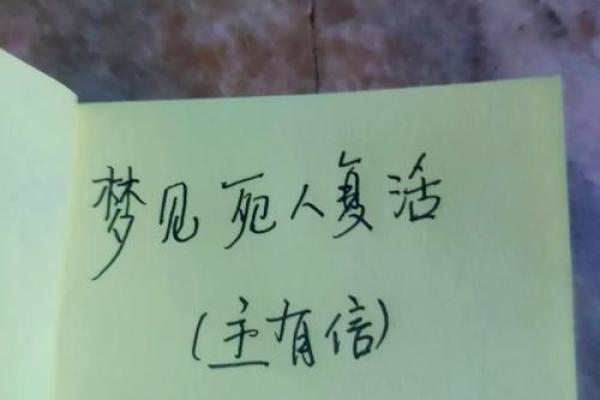 梦见死人复活
(主有信)